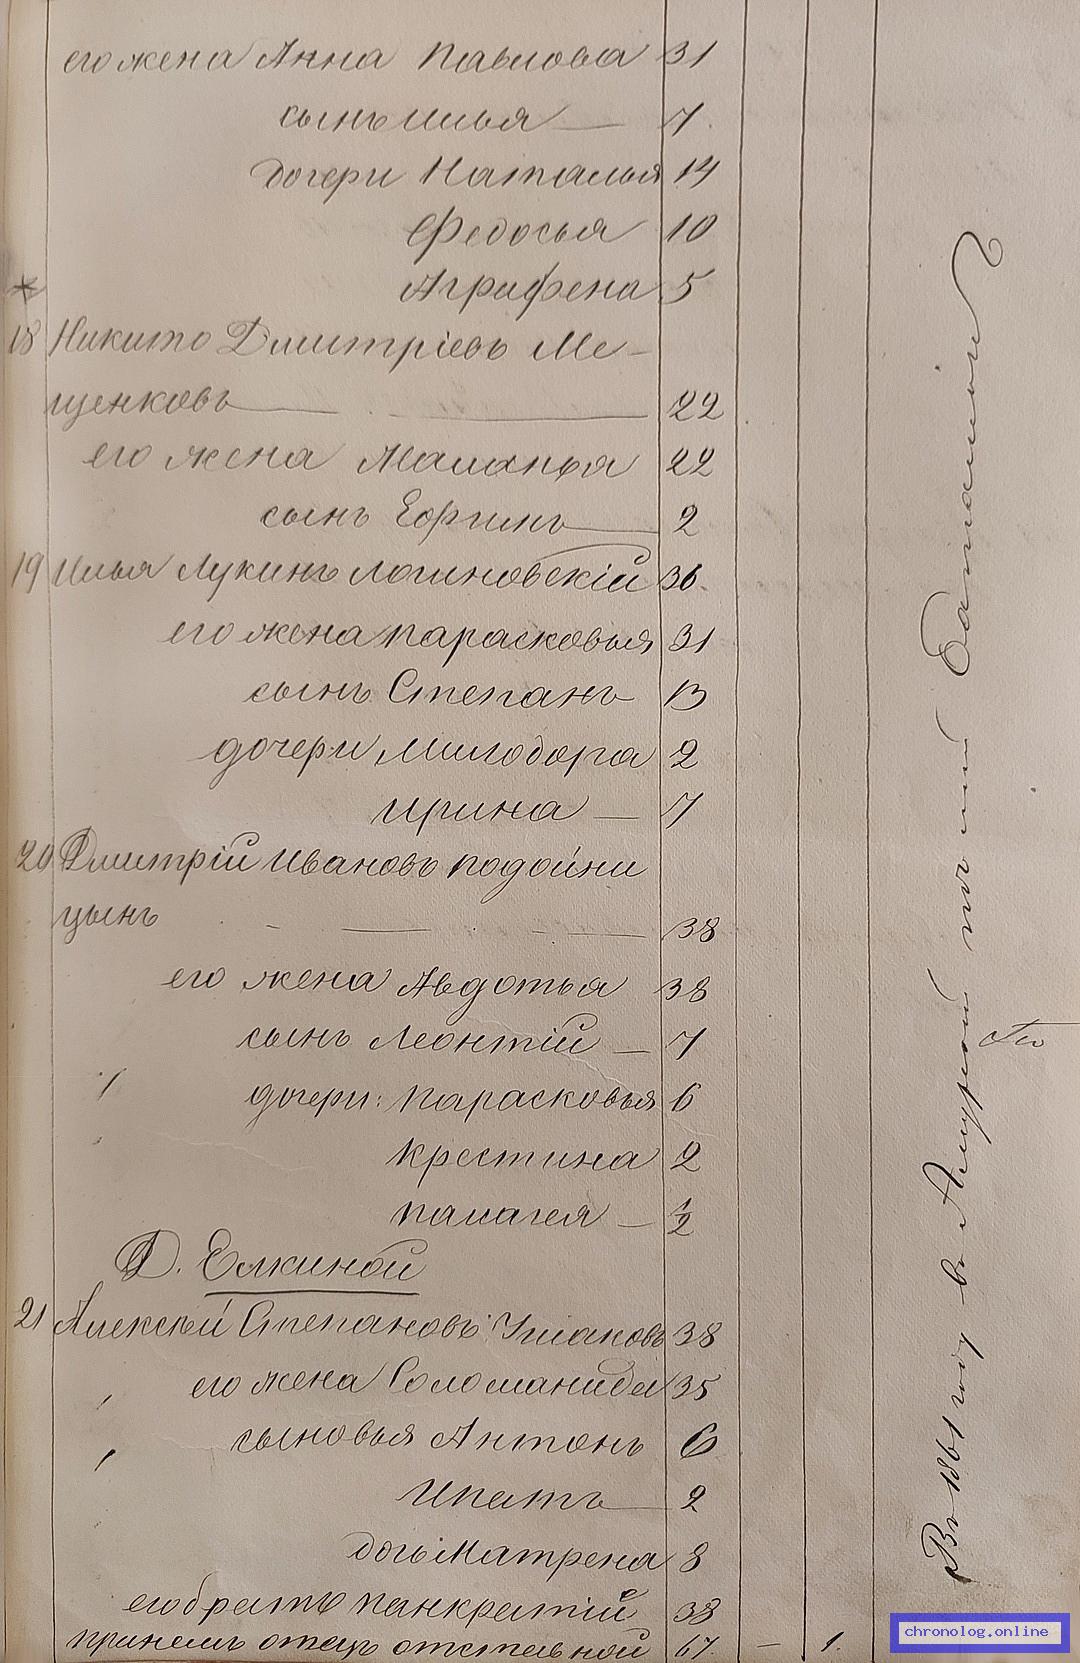 его жена Анна Павлова 31
сынъ Илья — 7
дочери Наталья 14
Федосья 10
Аграфена 5
18 Никито Дмитріевъ Ме-
щенковъ 22
его жена Маланья 22
сынъ Ефримъ 2
19 Илья Лукинъ Логиновскій 36
его жена Парасковья 31
сынъ Степанъ 13
дочери Милодора 2
Ирина — 7
20 Дмитрій Ивановъ Подойни
цынъ 38
его жена Авдотья 38
сынъ Леонтій — 7
дочери: Парасковья 6
Крестина 2
Палагея — 1/2
Д. Елкиной
21 Алексѣй Степановъ Ушаковъ 38
его жена Соломанида 35
сыновья Антонъ 6
Ипатъ 2
дочь Матрена 8
его братъ Панкратій 38
отецъ 67 — 1.
Въ 1861 году въ Амурскій пѣшій Баталіонъ
chronolog.online